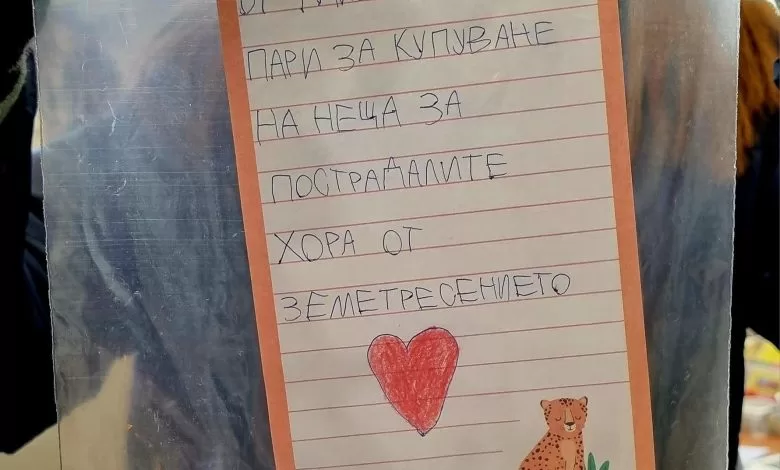 ОТ
ПАРИ ЗА КУПУВАНЕ
НА НЕЩА ЗА
ПОСТРАДАЛИТЕ
ХОРА ОТ
ЗЕМЕТРЕСЕНИЕТО